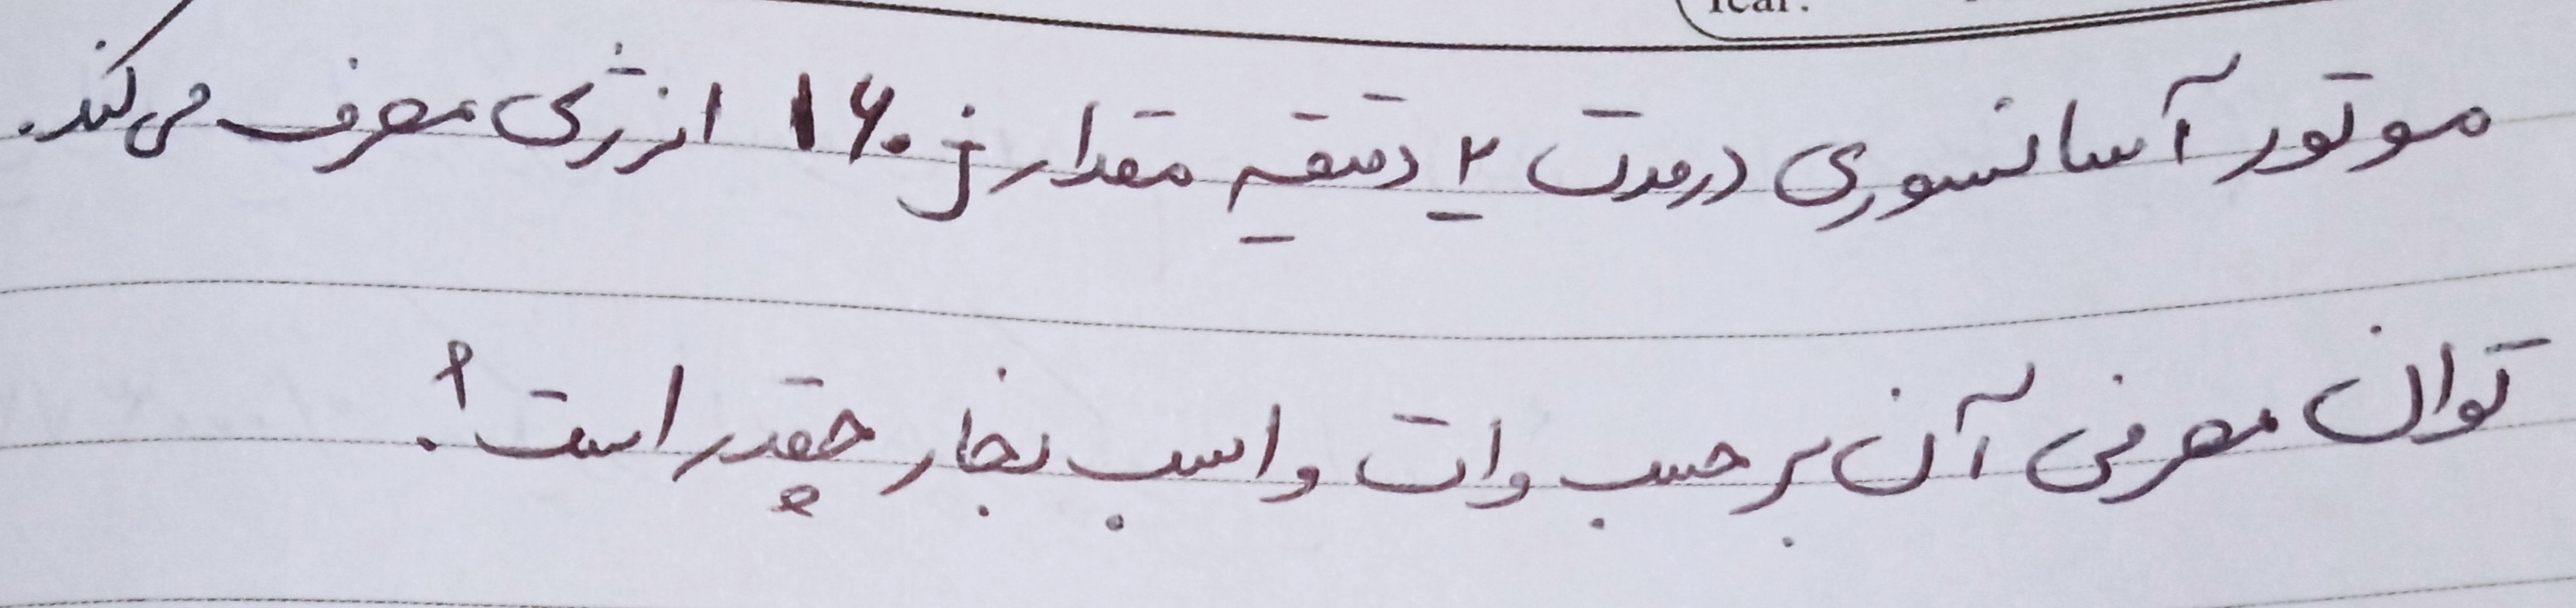 ical.
موتور آسانسوری در مدت ۲ دقیقه مقدار ۱۶۰ j انرژی مصرف می‌کند.
توان مصرفی آن بر حسب وات و اسب بخار چقدر است؟